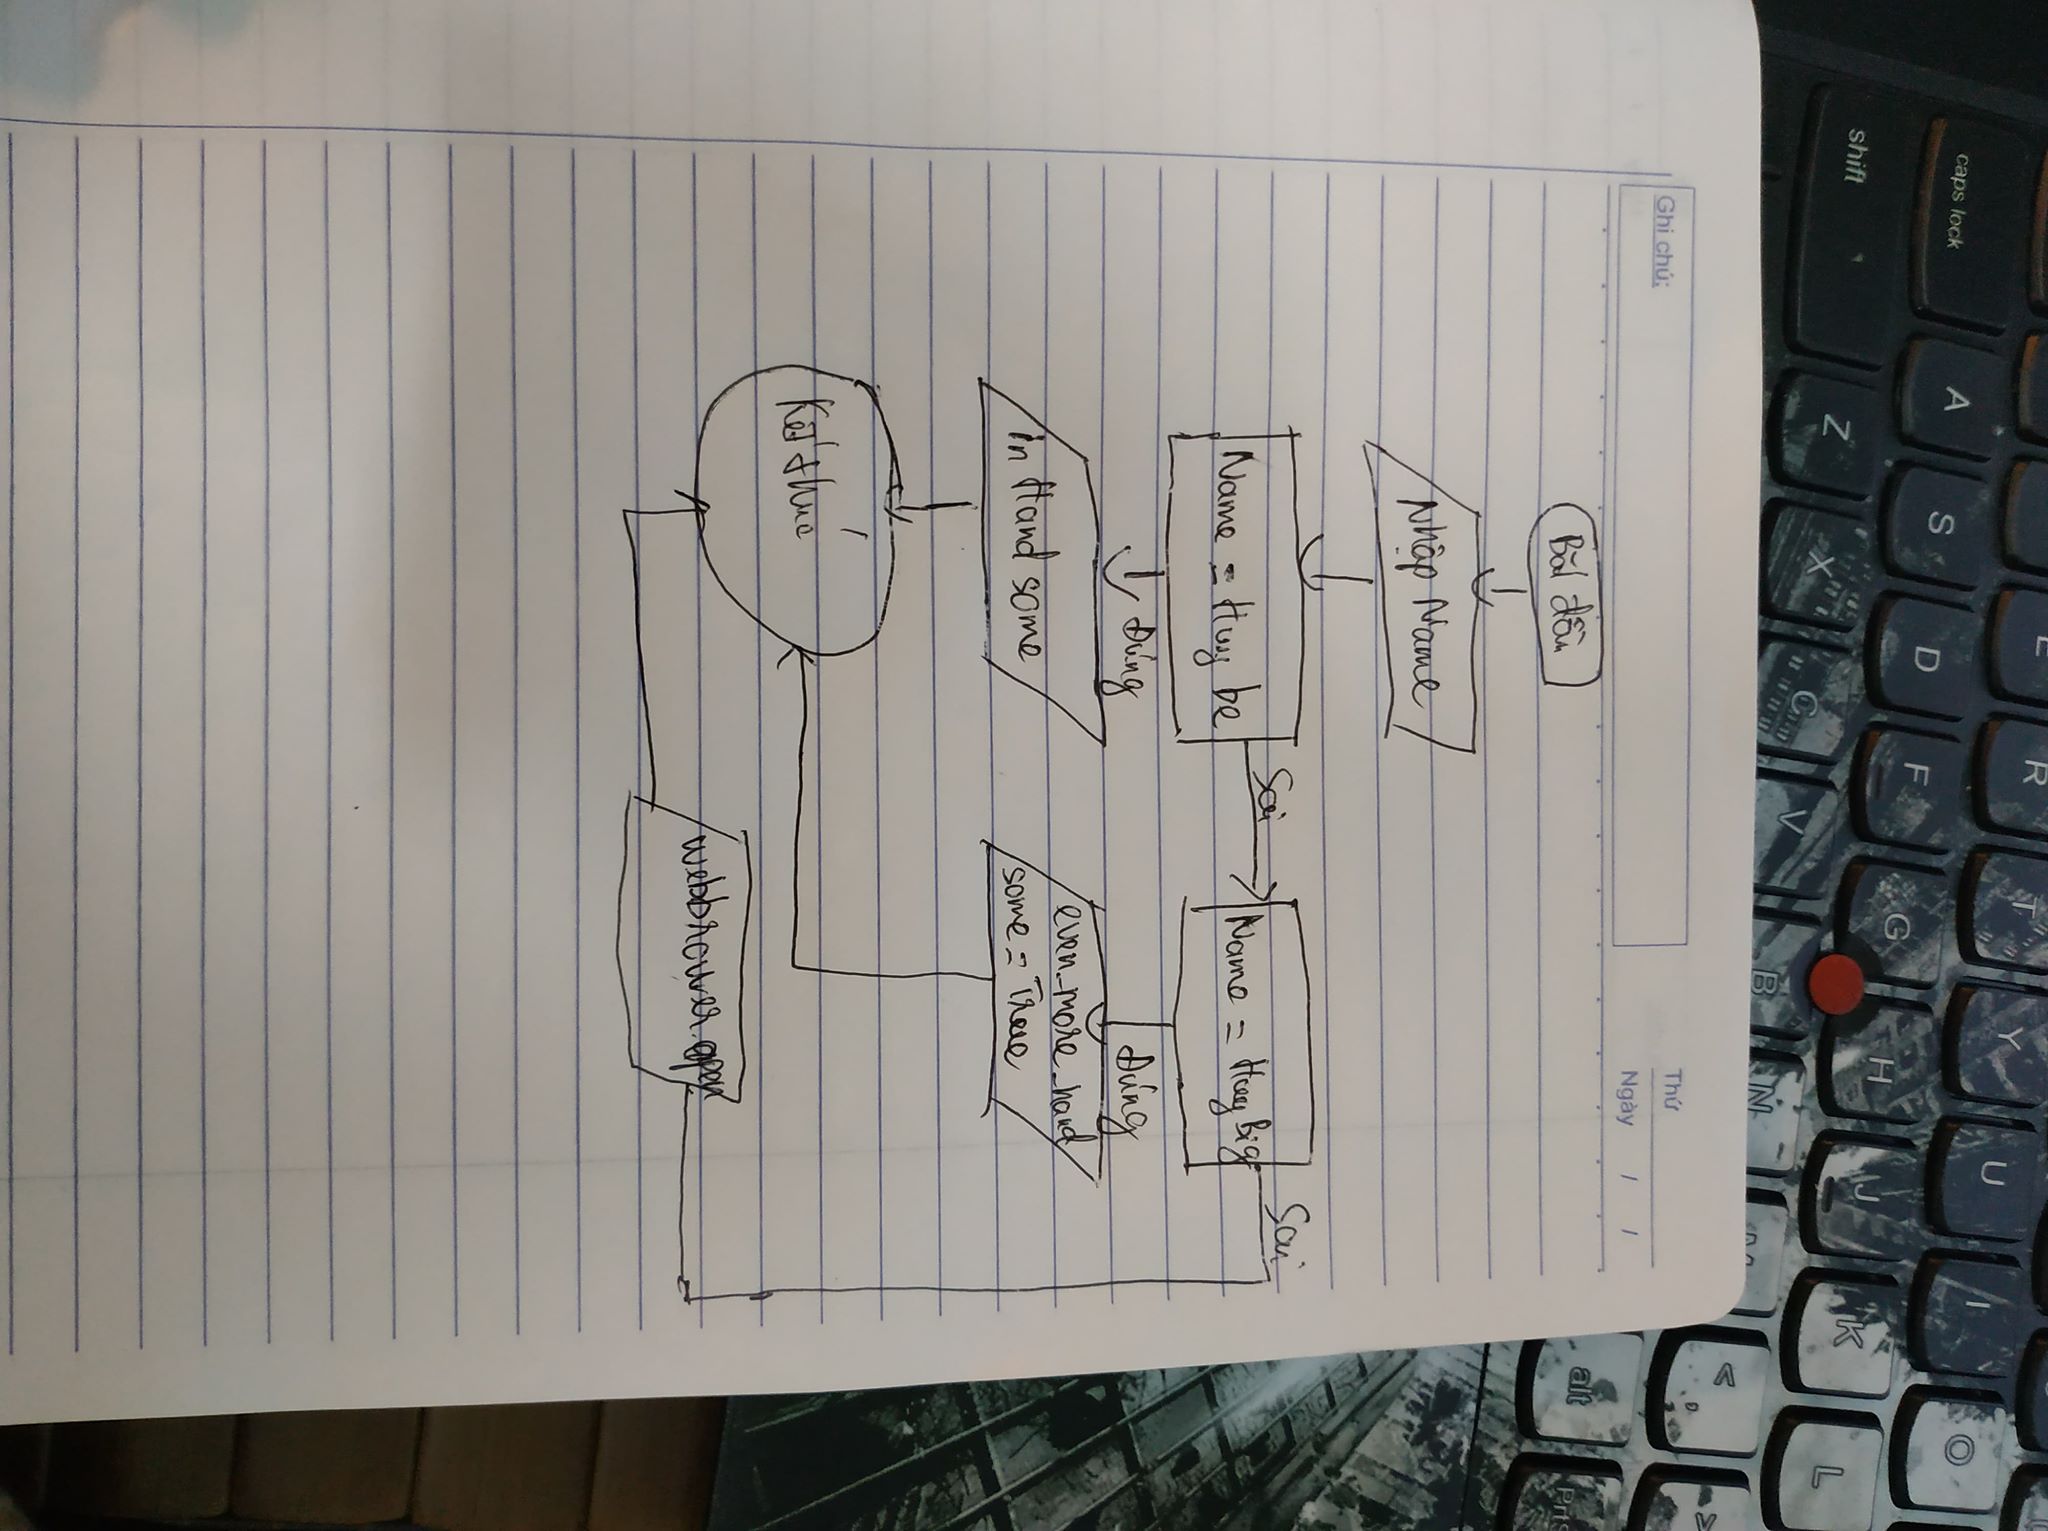 E R T Y U I O
caps lock A S D F G H J K L
shift Z X C V B N M < ,
alt PrtS
Ghi chú:
Thứ
Ngày / /
Bắt đầu
Nhập Name
Name = Huy be
Sai
Name = Huy Big
Sai
Đúng
Đúng
in Hand some
even_more_hand
some = True
Kết thúc
webbrower.open